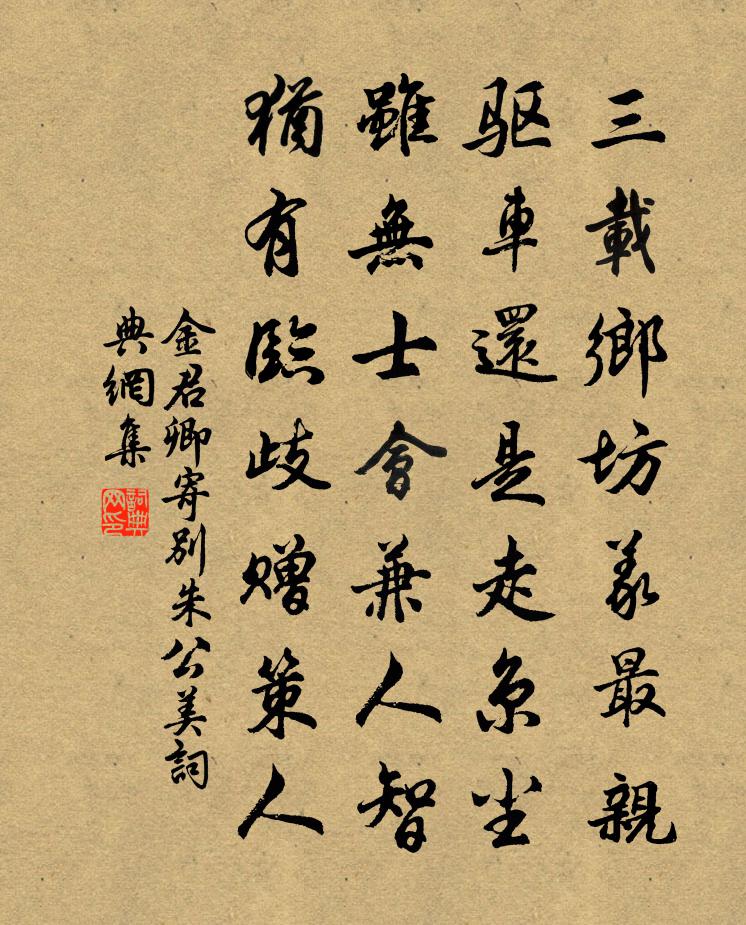 三載鄉坊義最親
驱車還是走京尘
雖無士會兼人智
猶有臨歧贈策人
金君卿寄別朱公美詞
典網集
詞典
网印